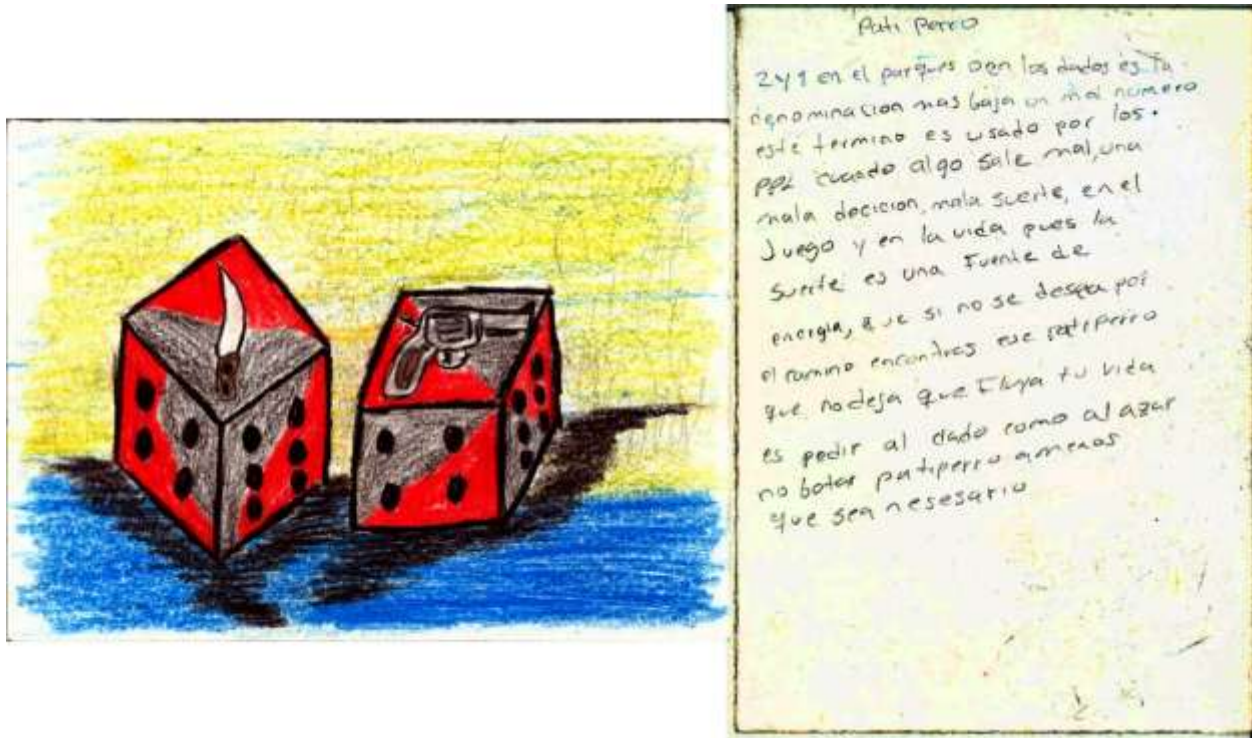 Pati Perro
2 y 1 en el parques o en los dados es la
denominacion mas baja un mal numero
este termino es usado por los.
PPL cuando algo sale mal, una
mala decicion, mala suerte, en el
Juego y en la vida pues la
suerte es una Fuente de
energia, que si no se desea por
el camino encontras ese patiperro
que no deja que Fluya tu vida
es pedir al dado como al azar
no botar patiperro amenos
que sea nesesario